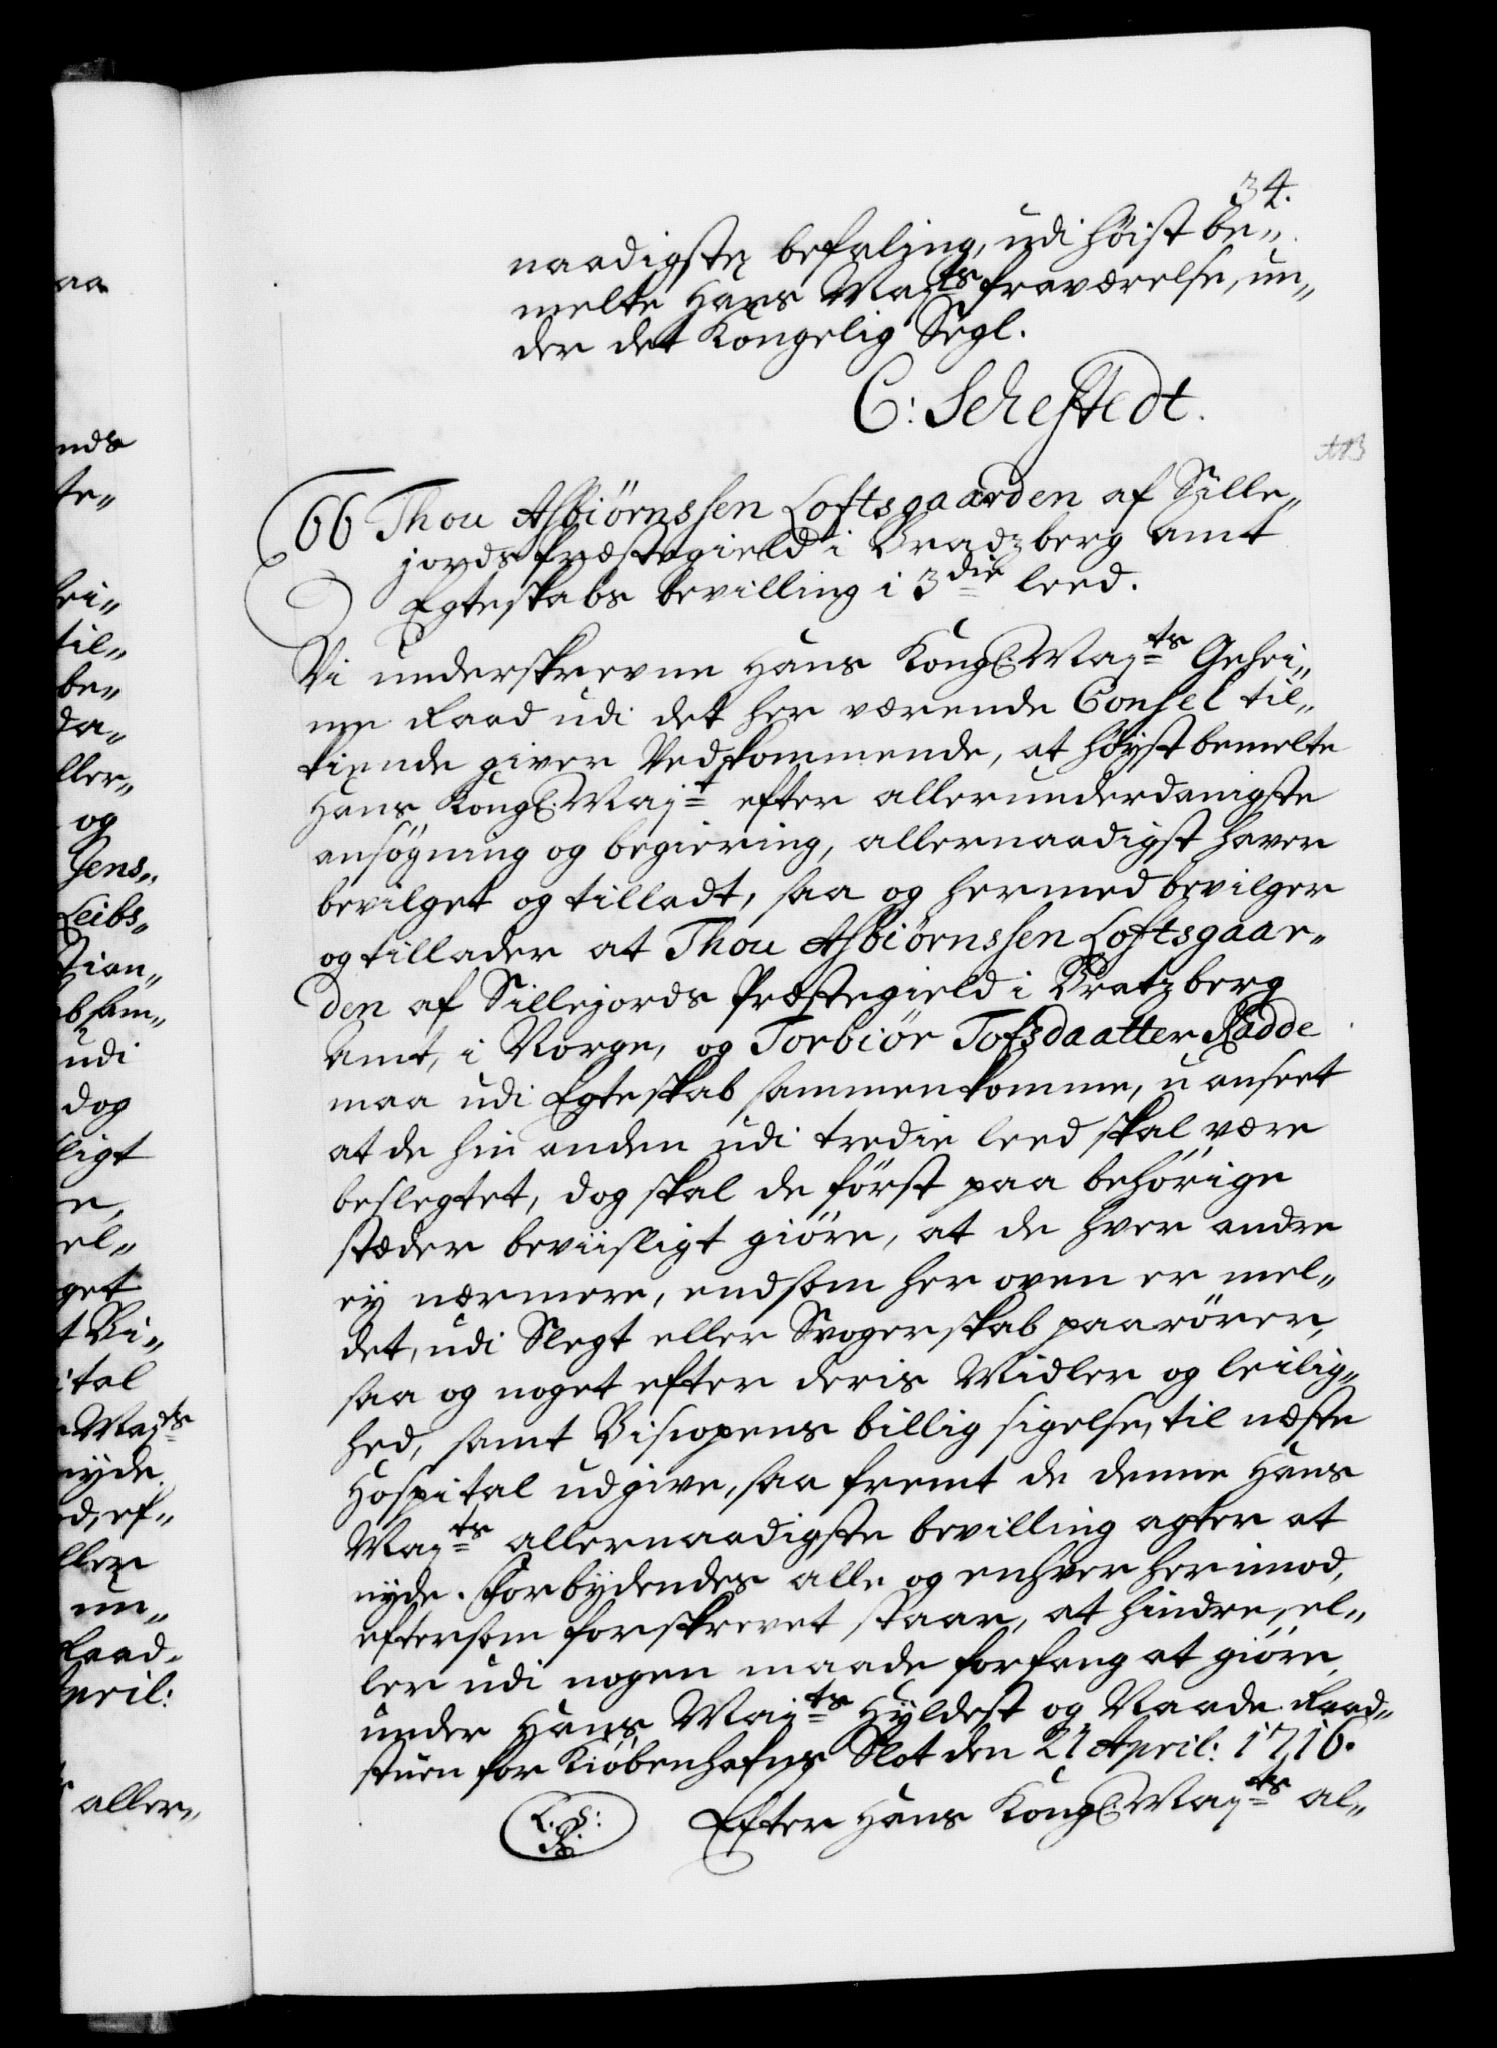 34.
naadigste befaling, udi høist be„
melte Hans Maj^ts fraværelse, un„
der det Kongelig Segl.
C: Sehestedt.
66 Thou Asbiørnssen Loftsgaarden af Sille„
jords Præstegield i Bradzberg Amt
Egteskabs bevilling i 3die leed.
Vi underskrevne Hans Kongl. Maj^ts Gehei„
me Raad udi det her værende Conseil til„
kiende giver Vedkommende, at høyst bemelte
Hans Kongl. Maj^t efter allerunderdanigste
ansøgning og begiering, allernaadigst haver
bevilget og tilladt, saa og hermed bevilger
og tillader at Thou Asbiørnssen Loftsgaar„
den af Sillejords Præstegield i Bratzberg
Amt, i Norge, og Torbiør Tofsdaatter Rådde
maa udi Egteskab sammenkomme, uanseet
at de hin anden udi tredie leed skal være
beslegtet, dog skal de først paa behørige
stæder beviisligt giøre, at de hver andre
ey nærmere, end som her oven er mel„
det, udi Slegt eller Svogerskab paarører,
saa og noget efter deris Midler og leilig„
hed, samt Biscopens billig sigelse, til næste
Hospital udgive, saa fremt de denne Hans
Maj^ts allernaadigste bevilling agter at
nyde. Forbydendes alle og enhver herimod,
eftersom forskrevet staar, at hindre, el„
ler udi nogen maade forfang at giøre,
under Hans Maj^ts Hyldest og Naade. Raad„
stuen for Kiøbenhafns Slot den 21 April: 1716.
L. S:
R.
Efter Hans Kongl. Maj^ts al„
aa
nds
te„
hei„
til„
be„
da„
ller„
og
sens„
Leibs„
Stian„
b sam„
udi
dog
ligt
e,
el„
get
t Bi„
ital
Maj^ts
nyde.
d, ef„
ller
un„
Raad„
pril:
aller„